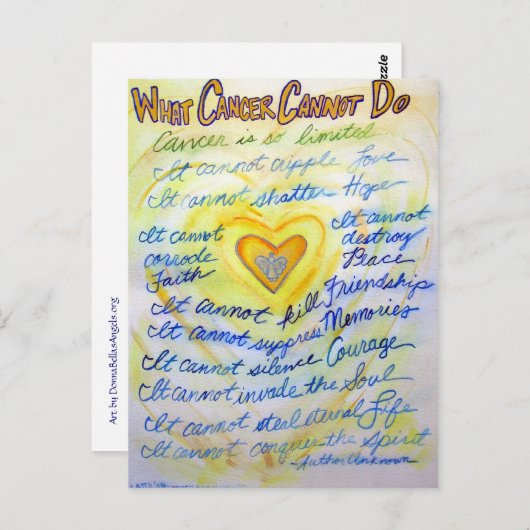 WHAT CANCER CANNOT DO
Cancer is so limited...
It cannot cripple Love
It cannot shatter Hope
It cannot
corrode
Faith
It cannot
destroy
Peace
It cannot kill Friendship
It cannot suppress Memories
It cannot silence Courage
It cannot invade the Soul
It cannot steal eternal Life
It cannot conquer the Spirit
-Author Unknown
Art by DonnaBellasAngels.org
zzle